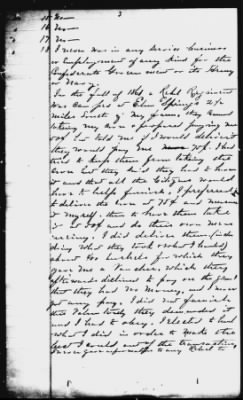 3
15 No —
16 No —
17 No —
18 I never was in any service business
or Employment of any kind for the
Confederate Government or its Army
or Navy
In the fall of 186 a Rebel Regiment
was Camped at Elm Springs 2 1/2
miles South of my farm, they
taking my corn & proposed paying me
50¢ but told me if I would deliver it
they would pay me 75¢ I had
tried to keep them from taking the
Corn but they said they had to have
it and that all the Citizens would
have to help furnish, I preferred
to deliver the corn at 75¢ and measure
it myself, than to have them take
it at 50¢ and do their own mea-
suring. I did deliver them
ding what they took & what I hauled
about 400 bushels for which they
gave me a voucher which they
afterwards declined to pay on the plea
that they had no money, and I never
got any pay. I did not furnish
this voluntarily they demanded it
and I had to obey. I elected to haul
what I did in order to make the
best I could out of the transaction,
I never gave information to any Rebel to